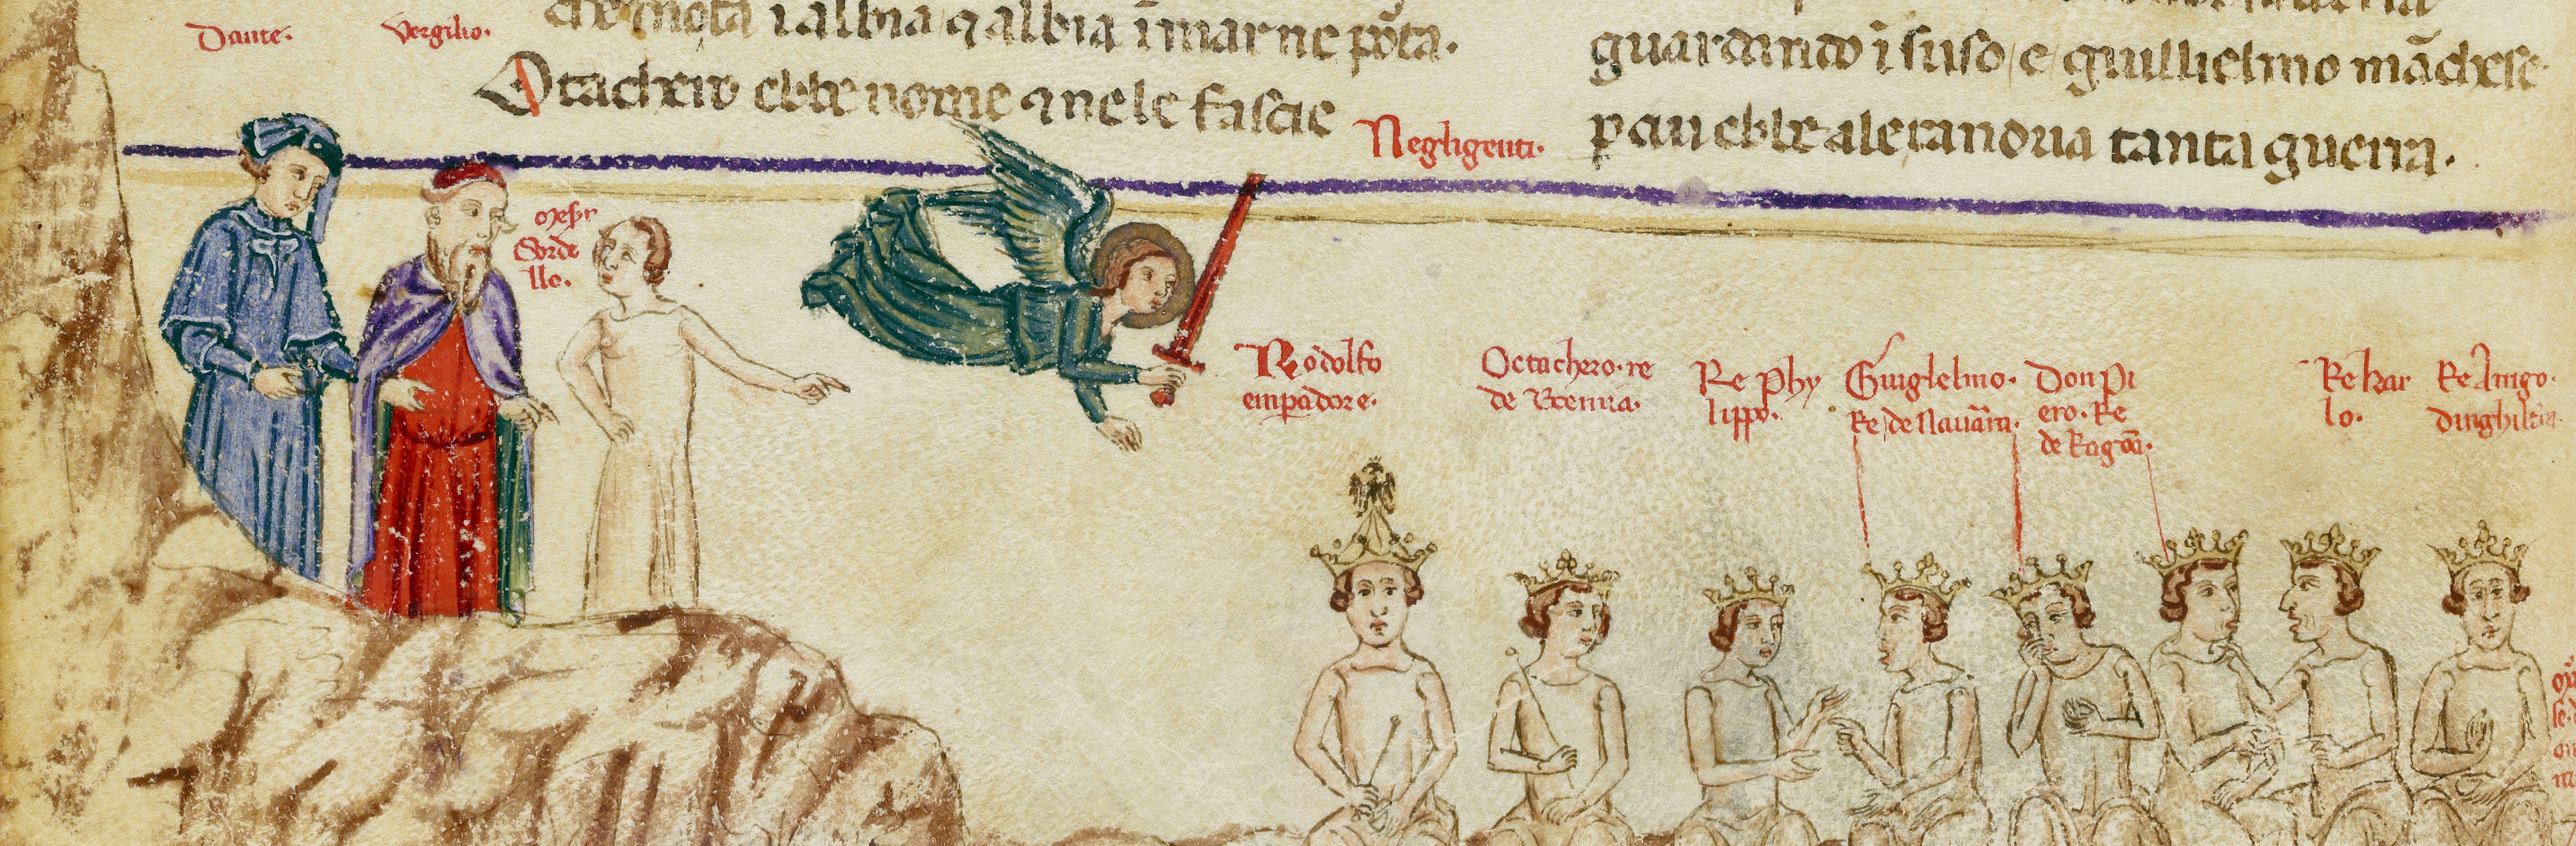 Dante.
Vergilio.
che mota ĩ albia ꝗ albia ĩ mar ne põta.
Otachero ebbe nome ꝗ nele fascie
guardando ĩ suso e guillielmo mãchese
p cui ebbe alexandria tanta guerra.
Negligenti.
Sorde
llo.
Rodolfo
empadore.
Octachero. re
de Boemia.
Re Phy
lippo.
Guiglelmo.
Re de Nauãra.
Don Pi
ero. Re
de Ragõa.
Re kar
lo.
Re Arrigo.
dinghiltra.